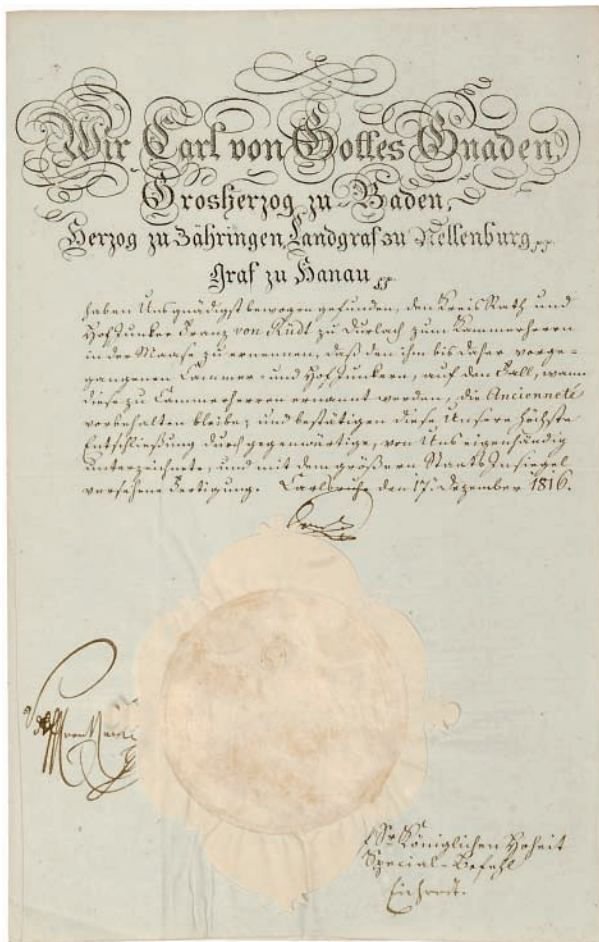 Wir Carl von Gottes Gnaden,
Grosherzog zu Baden,
Herzog zu Zähringen, Landgraf zu Nellenburg
Graf zu Hanau
haben Uns gnädigst bewogen gefunden, den Kreis Rath und
Hof Junker Franz von Rüdt zu Durlach zum Kammerherrn
in der Maase zu ernennen, daß den ihm bis daher vorge-
gangenen Cammer- und Hof Junkern, auf den Fall, wann
diese zu Cammerherren ernannt werden, die Ancienneté
vorbehalten bleibe; und bestätigen diese Unsere höchste
Entschließung durch gegenwärtige, von Uns eigenhändig
unterzeichnete, und mit dem größern Staats Insiegel
versehene Fertigung. Carlsruhe den 17. Dezember 1816.
Carl
Sr. Königlichen Hoheit
Special-Befehl